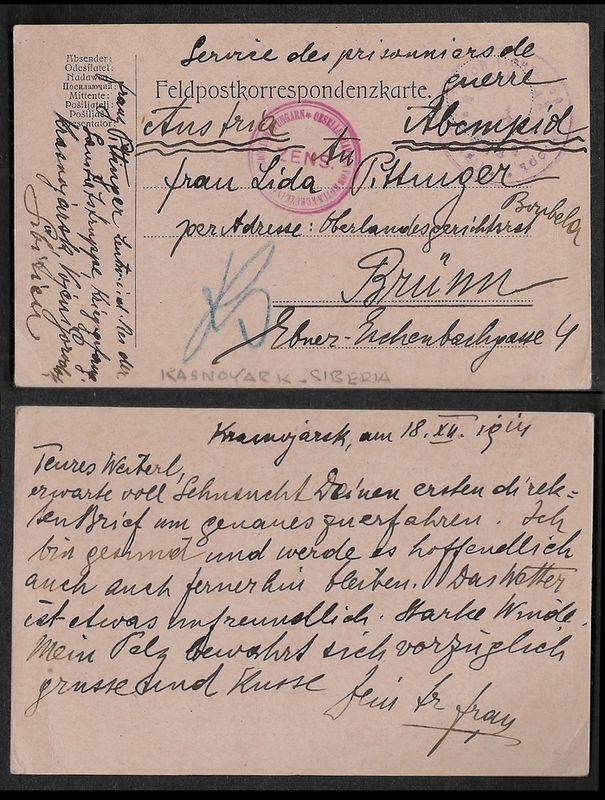 Service des prisonniers de
guerre
Absender:
Odesílatel:
Nadawca
Посилаючий
Mittente:
Pošiljatelj:
Feldpostkorrespondenzkarte.
Austria
Австрия
An
ZENS.
Frau Lida Pittinger
per Adresse: Oberlandesgerichtsrat
Brünn
Ebner-Eschenbachgasse 4
Franz Pittinger
Krasnojarsk
Sibirien
KASNOYARK - SIBERIA
Krasnojarsk, am 18. XII. 1914
Teures Weiberl,
erwarte voll Sehnsucht Deinen ersten direk=
ten Brief um genaues zu erfahren. Ich
bin gesund und werde es hoffendlich
auch auch fernerhin bleiben. Das Wetter
ist etwas unfreundlich. Starke Winde.
Mein Pelz bewährt sich vorzüglich
grüsse und Küsse
Dein Fr